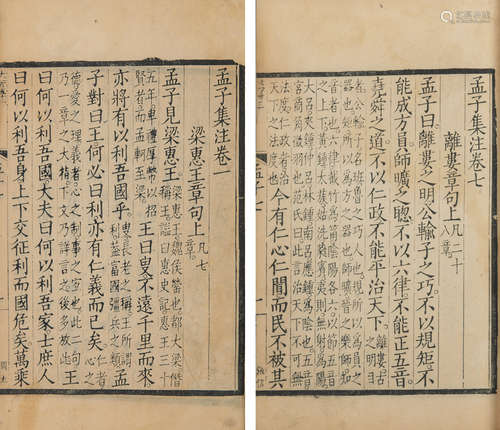 孟子集注卷一
梁惠王章句上 凡七章
孟子見梁惠王 梁惠王魏侯罃也都大梁僭稱王諡曰惠史記惠王三十
五年卑禮厚幣以招賢者而孟軻至梁 王曰叟不遠千里而來
亦將有以利吾國乎 叟長老之稱王所謂利蓋富國彊兵之類 孟
子對曰王何必曰利亦有仁義而已矣 仁者心之
德愛之理義者心之制事之宜也此二句乃一章之大指下文乃詳言之後多放此 王
曰何以利吾國大夫曰何以利吾家士庶人
曰何以利吾身上下交征利而國危矣萬乘
孟子集注卷七
離婁章句上 凡二十八章
孟子曰離婁之明公輸子之巧不以規矩不
能成方員師曠之聰不以六律不能正五音
堯舜之道不以仁政不能平治天下 離婁古之明目
者公輸子名班魯之巧人也規所以為員之器也矩所以為方之器也師曠晉之樂師知
音者也六律截竹為筩陰陽各六以節五音之上下黃鍾太蔟姑洗蕤賓夷則無射為陽
大呂夾鍾仲呂林鍾南呂應鍾為陰也五音宮商角徵羽也范氏曰此言治天下不可無
法度仁政者治天下之法度也 今有仁心仁聞而民不被其